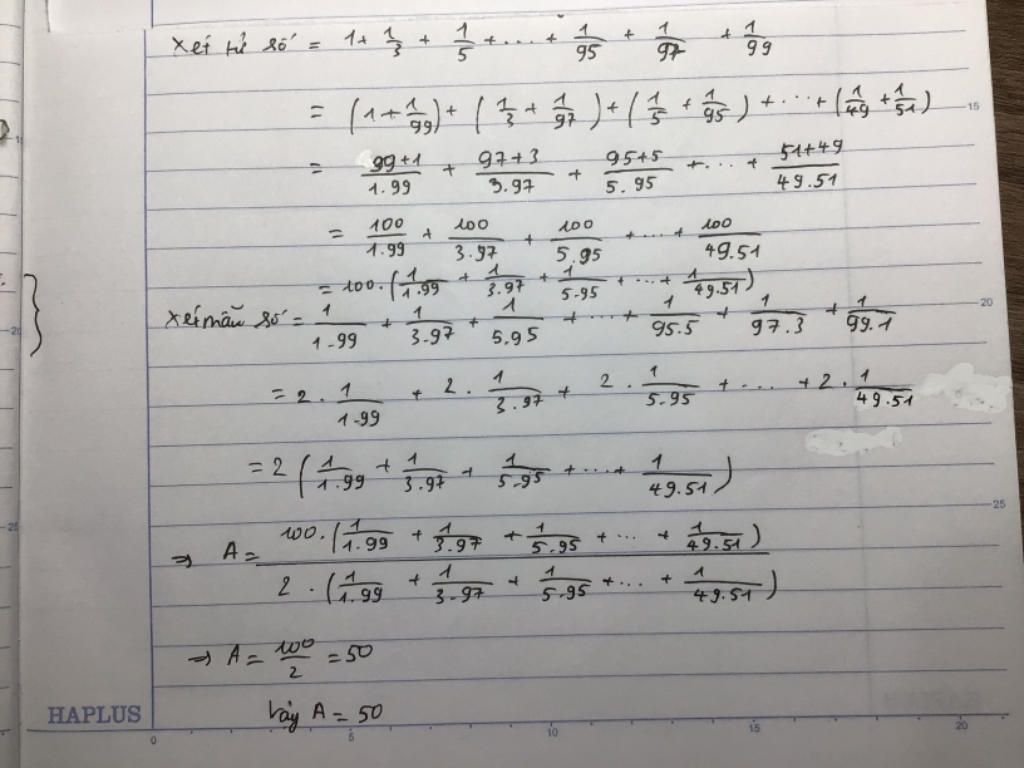 Xét tử số = 1 + 1/3 + 1/5 + ... + 1/95 + 1/97 + 1/99
= (1 + 1/99) + (1/3 + 1/97) + (1/5 + 1/95) + ... + (1/49 + 1/51)
= (99+1)/(1.99) + (97+3)/(3.97) + (95+5)/(5.95) + ... + (51+49)/(49.51)
= 100/(1.99) + 100/(3.97) + 100/(5.95) + ... + 100/(49.51)
= 100.(1/(1.99) + 1/(3.97) + 1/(5.95) + ... + 1/(49.51))
Xét mẫu số = 1/(1.99) + 1/(3.97) + 1/(5.95) + ... + 1/(95.5) + 1/(97.3) + 1/(99.1)
= 2. 1/(1.99) + 2. 1/(3.97) + 2. 1/(5.95) + ... + 2. 1/(49.51)
= 2 (1/(1.99) + 1/(3.97) + 1/(5.95) + ... + 1/(49.51))
⇒ A = 100.(1/(1.99) + 1/(3.97) + 1/(5.95) + ... + 1/(49.51)) / 2.(1/(1.99) + 1/(3.97) + 1/(5.95) + ... + 1/(49.51))
⇒ A = 100/2 = 50
Vậy A = 50
HAPLUS
0 5 10 15 20
15
20
25